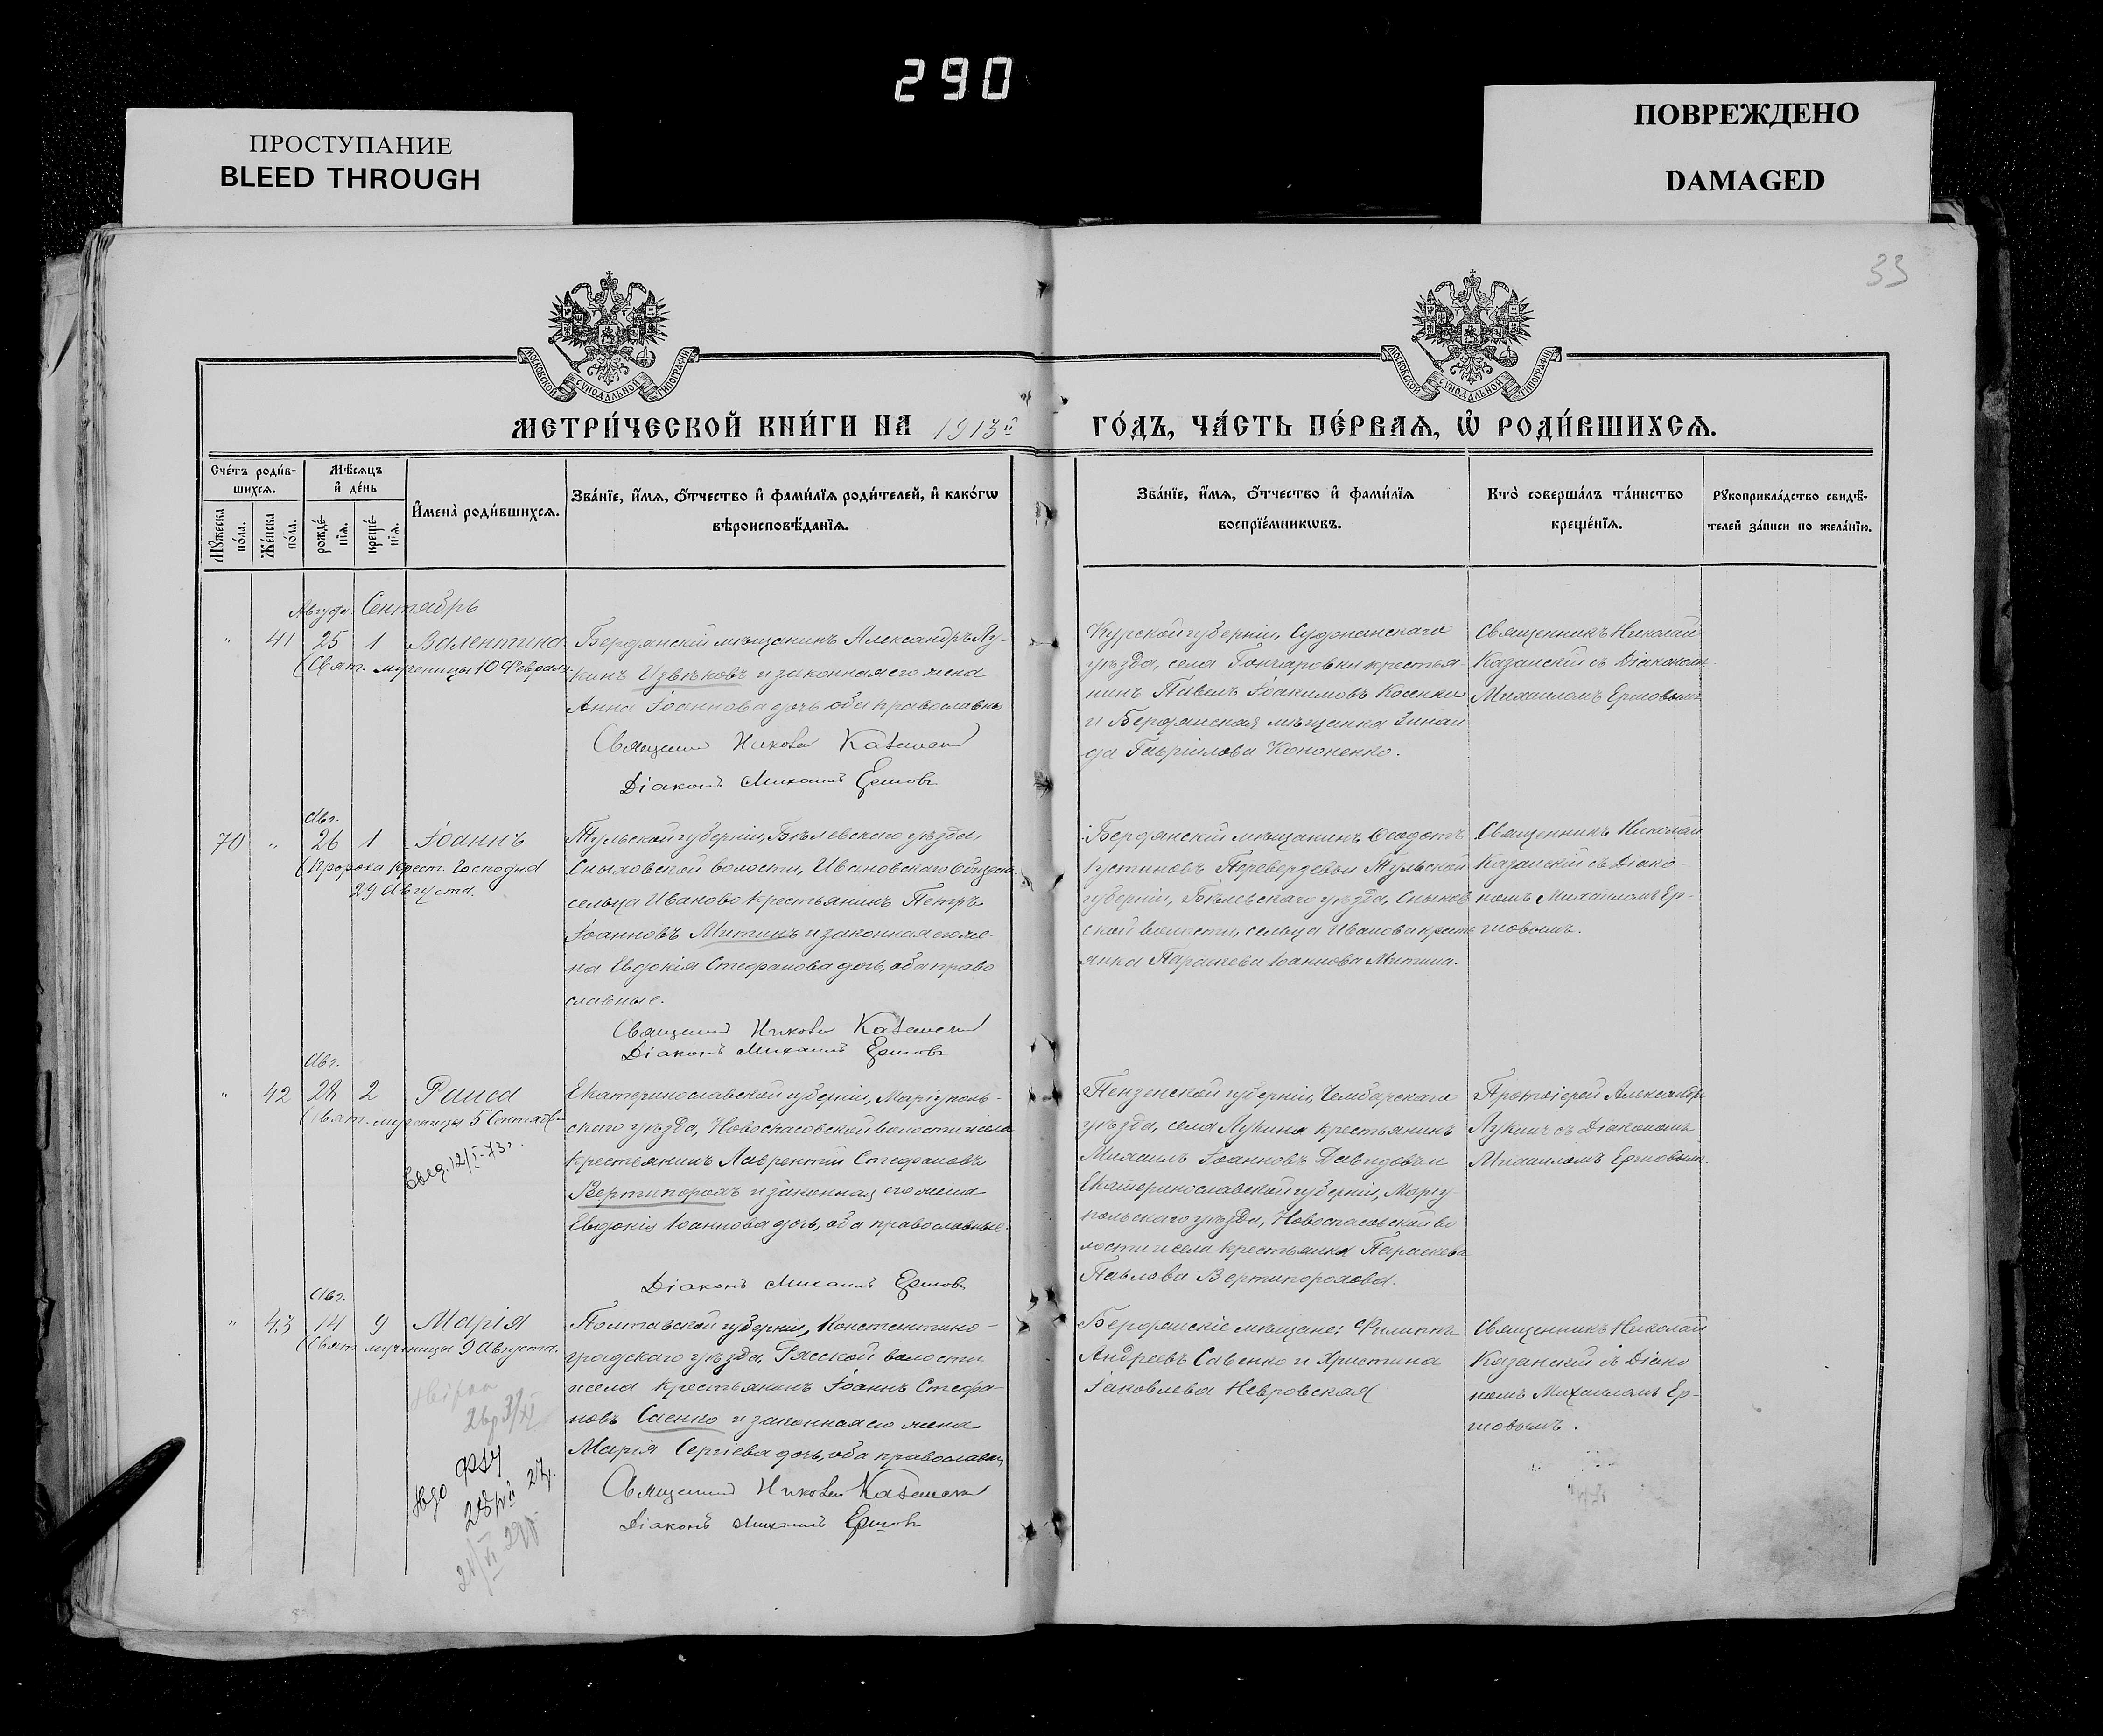 290
ПРОСТУПАНИЕ
BLEED THROUGH
ПОВРЕЖДЕНО
DAMAGED
33
МОСКОВСКОЙ СѴНОДАЛЬНОЙ ТИПОГРАФІИ
МОСКОВСКОЙ СѴНОДАЛЬНОЙ ТИПОГРАФІИ
МЕТРИ́ЧЕСКОЙ КНИ́ГИ НА 1913й ГО́ДЪ, ЧА́СТЬ ПЕ́РВАѦ, Ѡ҆ РОДИ́ВШИХСѦ.
Сче́тъ роди́в-
шихсѧ.
Мꙋ́жеска по́ла.
Же́нска по́ла.
Мѣ́сѧцъ
и҆ де́нь
рожде́-
нїѧ.
креще́-
нїѧ.
И҆мена̀ роди́вшихсѧ.
Зва́нїе, и҆́мѧ, ѻ҆́тчество и҆ фами́лїѧ роди́телей, и҆ како́гѡ
вѣроисповѣ́данїѧ.
Зва́нїе, и҆́мѧ, ѻ҆́тчество и҆ фами́лїѧ
воспрїе́мникѡвъ.
Кто̀ соверша́лъ та́инство
креще́нїѧ.
Рꙋкоприкла́дство свидѣ́-
телей за́писи по жела́нїю.
Августъ. Сентябрь
" 41 25 1 Валентина
(Свят. мученицы 10 Февраля.
Бердянскій мѣщанинъ Александръ Лу-
кинъ Извѣковъ и законная его жена
Анна Іоаннова дочь оба православны
Священникъ Николай Казанскій
Діаконъ Михаилъ Ершовъ
Курской губерніи, Суджанскаго
уѣзда, села Гончаровки крестья-
нинъ Павелъ Іоакимовъ Косенко
и Бердянская мѣщанка Зинаи-
да Гавріилова Кононенко.
Священникъ Николай
Казанскій съ Діакономъ
Михаиломъ Ершовымъ
Авг.
70 " 26 1 Іоаннъ
(Пророка Крест. Господня
29 Августа.
Тульской губерніи, Бѣлевскаго уѣзда,
Сныховской волости, Ивановскаго общества
сельца Иваново крестьянинъ Петръ
Іоанновъ Митинъ и законная его же-
на Евдокія Стефанова дочь, оба право
славные.
Священникъ Николай Казанскій
Діаконъ Михаилъ Ершовъ
Бердянскій мѣщанинъ Ѳеодотъ
Іустиновъ Перевердевъ и Тульской
губерніи, Бѣлевскаго уѣзда, Сныхов
ской волости, сельца Иванова кресть
янка Параскева Іоаннова Митина.
Священникъ Николай
Казанскій съ Діако-
номъ Михаиломъ Ер-
шовымъ.
Авг.
" 42 28 2 Раиса
(Свят. мученицы 5 Сентября
12/I-73г.
Екатеринославской губерніи, Маріуполь-
скаго уѣзда, Новоспасовской волости и села
крестьянинъ Лаврентій Стефановъ
Вертипорохъ и законная его жена
Евдокія Іоаннова дочь, оба православные.
Діаконъ Михаилъ Ершовъ
Пензенской губерніи, Чембарскаго
уѣзда, села Лунина крестьянинъ
Михаилъ Іоанновъ Давыдовъ и
Екатеринославской губерніи, Маріу-
польскаго уѣзда, Новоспасовской во
лости и села крестьянка Параскева
Павлова Вертипорохова.
Протоіерей Александръ
Лукинъ съ Діакономъ
Михаиломъ Ершовымъ.
Авг.
" 43 14 9 Марія
(Свят. мученицы 9 Августа.
Полтавской губерніи, Константино-
градскаго уѣзда, Рясской волости
и села крестьянинъ Іоаннъ Стефа-
новъ Саенко и законная его жена
Марія Сергіева дочь, оба православны
Священникъ Николай Казанскій
Діаконъ Михаилъ Ершовъ
Бердянскіе мѣщане: Филиппъ
Андреевъ Савенко и Христина
Іаковлева Невровская
Священникъ Николай
Казанскій съ Діако
номъ Михаиломъ Ер-
шовымъ.